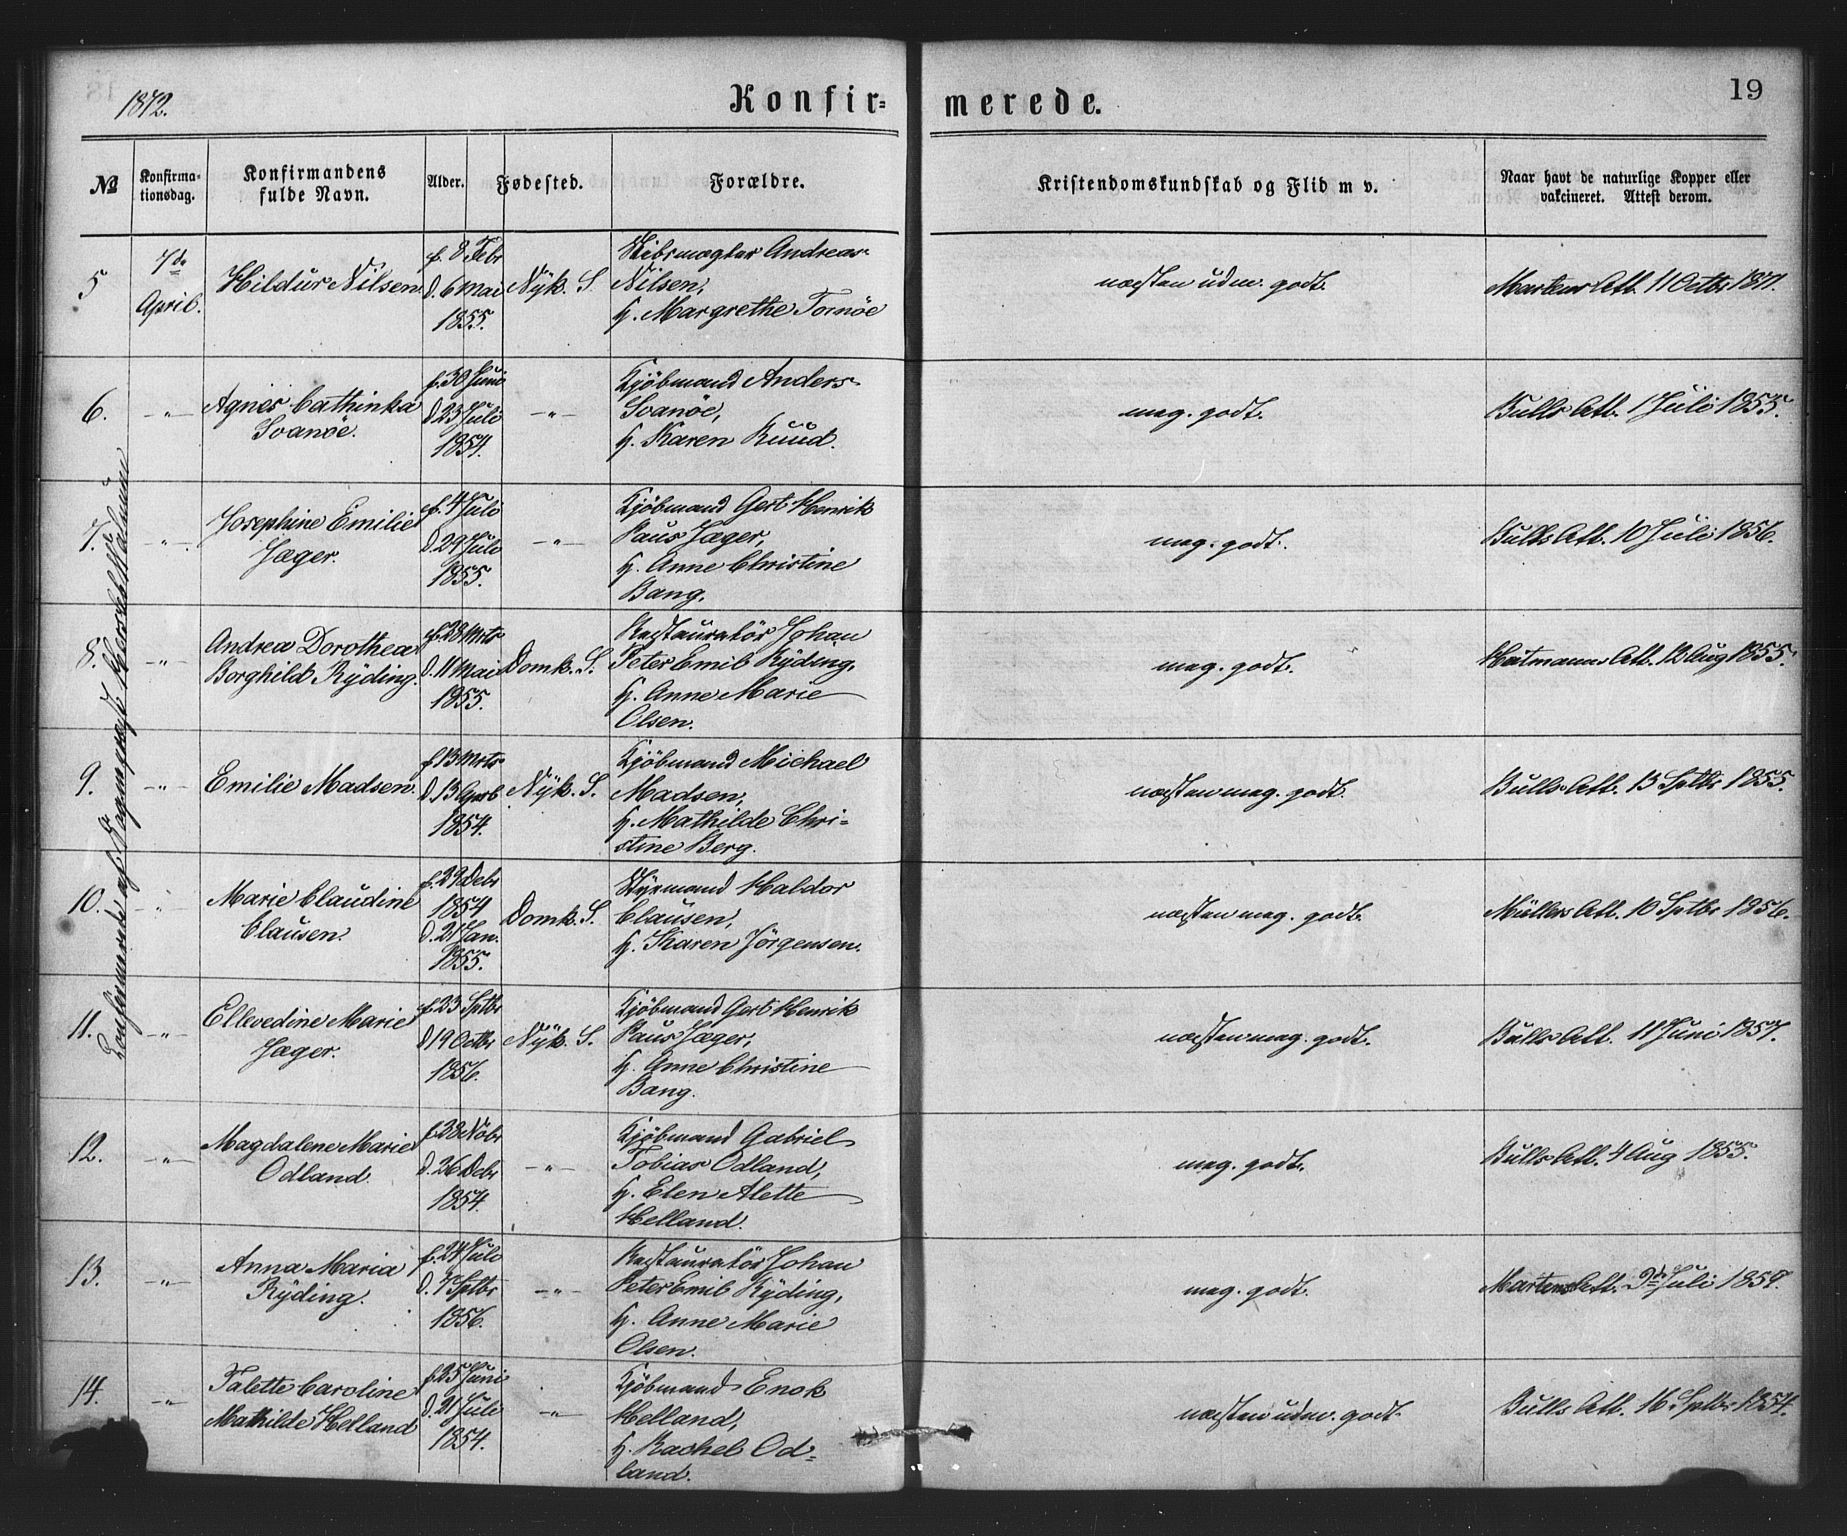 1872.
Konfir=
merede.
19
No
Konfirma-
tionsdag.
Konfirmandens
fulde Navn.
Alder.
Fødested.
Forældre.
Kristendomskundskab og Flid m v.
Naar havt de naturlige Kopper eller
vakcineret. Attest derom.
5
7de
April.
Hildur Nilsen
f. 8 Febr
d. 6 Mai
1855.
Nyk. S.
Andreas
Nilsen,
H. Margrethe Tornöe
næsten udm. godt.
Martens Att. 11 Octbr 1871.
6.
-"-
Agnes Cathinka
Svanöe.
f. 30 Juni
d. 23 Juli
1854.
-"-
Kjöbmand Anders
Svanöe,
H. Karen Ruud.
meg. godt.
Bulls Att. 1 Juli 1855.
7.
-"-
Josephine Emilie
Jæger.
f. 4 Juli
d. 29 Juli
1855.
-"-
Kjöbmand Gert Henrik
Paus Jæger,
H. Anne Christine
Bang.
meg. godt.
Bulls Att. 10 Juli 1856.
8.
-"-
Andrea Dorothea
Borghild Ryding.
f. 28 Mrts
d. 11 Mai
1855.
Domk. S.
Restauratör Johan
Peter Emil Ryding,
H. Anne Marie
Olsen.
meg. godt.
Att. 12 Aug 1855.
9.
-"-
Emilie Madsen.
f. 13 Mrts
d. 13 April
1854.
Nyk. S.
Kjöbmand Michael
Madsen,
H. Mathilde Chri=
stine Berg.
næsten meg. godt.
Bulls Att. 13 Sptbr 1855.
10.
-"-
Marie Claudine
Clausen.
f. 29 Debr
1854
d. 21 Jan.
1855.
Domk. S.
Styrmand Haldor
Clausen,
H. Karen Jörgensen.
næsten meg. godt.
Müllers Att. 10 Sptbr 1856.
11.
-"-
Ellevedine Marie
Jæger.
f. 23 Sptbr
d. 19 Octbr
1856.
Nyk. S.
Kjöbmand Gert Henrik
Paus Jæger,
H. Anne Christine
Bang.
næsten meg. godt.
Bulls Att. 11 Juni 1857.
12.
-"-
Magdalene Marie
Odland.
f. 28 Nobr
d. 26 Debr
1854.
-"-
Kjöbmand Gabriel
Tobias Odland,
H. Elen Alette
Helland.
meg. godt.
Bulls Att. 4 Aug 1855.
13.
-"-
Anna Maria
Ryding.
f. 24 Juli
d. 7 Sptbr
1856.
-"-
Restauratör Johan
Peter Emil Ryding,
H. Anne Marie
Olsen.
meg. godt.
Martens Att. Juli
14.
-"-
Talette Caroline
Mathilde Helland
f. 25 Juni
d. 21 Juli
1854.
-"-
Kjöbmand Enok
Helland,
H. Rachel Od=
land.
næsten udm. godt.
Bulls Att. 16 Sptbr 1854.
Confirmerede af Sognepræst